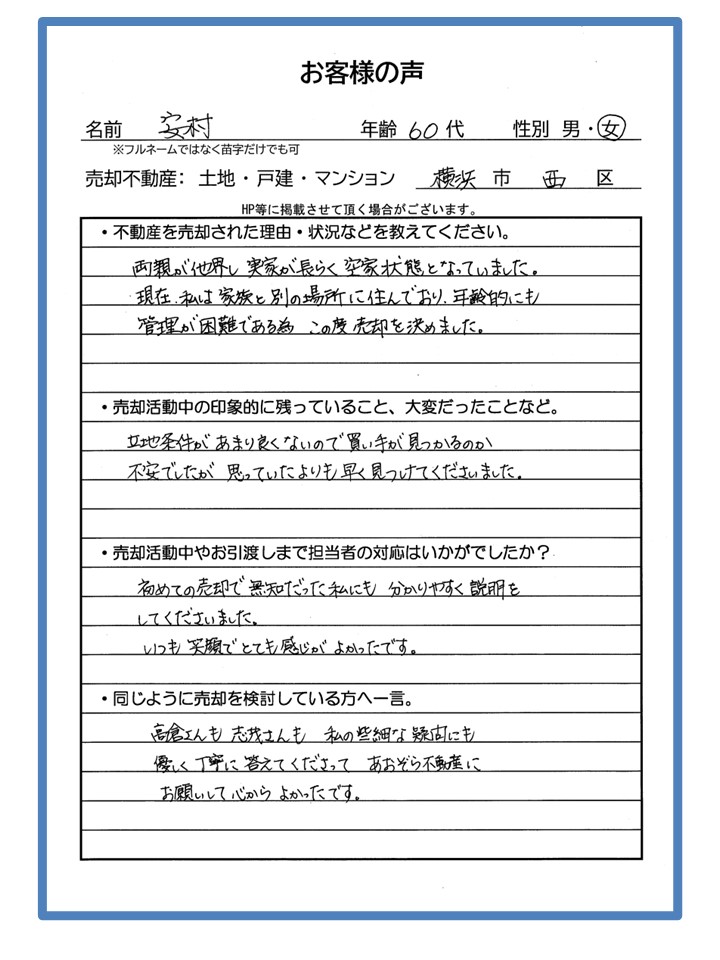 お客様の声
名前 安村 年齢 60代 性別 男・女
※フルネームではなく苗字だけでも可
売却不動産: 土地・戸建・マンション 横浜 市 西 区
HP等に掲載させて頂く場合がございます。
・不動産を売却された理由・状況などを教えてください。
両親が他界し 実家が長らく 空家状態となっていました。
現在、私は家族と別の場所に住んでおり、年齢的にも
管理が困難である為 この度 売却を決めました。
・売却活動中の印象的に残っていること、大変だったことなど。
立地条件があまり良くないので買い手が見つかるのか
不安でしたが 思っていたよりも早く見つけてくださいました。
・売却活動中やお引渡しまで担当者の対応はいかがでしたか?
初めての売却で無知だった私にも 分かりやすく説明を
してくださいました。
いつも笑顔でとても感じがよかったです。
・同じように売却を検討している方へ一言。
高倉さんも志茂さんも 私の些細な疑問にも
優しく丁寧に答えてくださって あおぞら不動産に
お願いして心からよかったです。